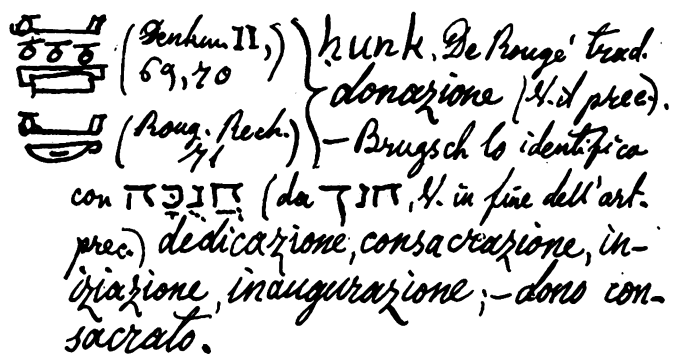 (Denkm II, ḥunk. De Rougé trad.
69,70) donazione (V. il prec.).
(Roug. Rech. – Brugsch lo identifica
71)
con חֲנֻכָּה (da חנך, V. in fine dell'art.
prec.) dedicazione, consacrazione, in-
iziazione, inaugurazione; – dono con-
sacrato.